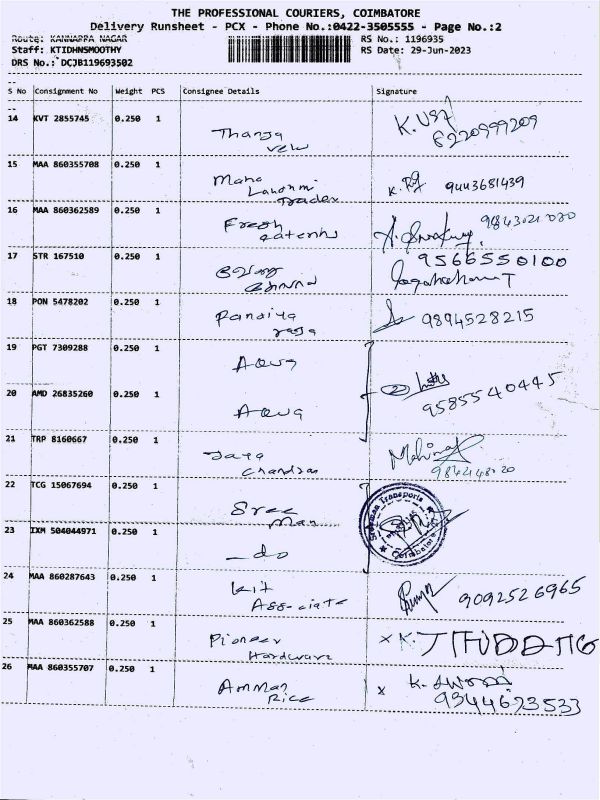 THE PROFESSIONAL COURIERS, COIMBATORE
Delivery Runsheet - PCX - Phone No.:0422-3505555 - Page No.:2
Route: KANNAPPA NAGAR RS No.: 1196935
Staff: KTIDHNSMOOTHY RS Date: 29-Jun-2023
DRS No.: DCJB119693502
S No Consignment No Weight PCS Consignee Details Signature
14 KVT 2855745 0.250 1
Thanga
velu
K. Usz
8220999209
15 MAA 860355708 0.250 1
Maha
Lakshmi
Trader
9443681439
16 MAA 860362589 0.250 1
Fresh
9843021020
17 STR 167510 0.250 1
9566550100
18 PON 5478202 0.250 1
Pandiya
raja
9894528215
19 PGT 7309288 0.250 1
Aqua
20 AMD 26835260 0.250 1
Aqua
9585540445
21 TRP 8160667 0.250 1
Jaya
Chandran
22 TCG 15067694 0.250 1
Sree
Man
Sreeman Transports
Coimbatore
23 IXM 504044971 0.250 1
-do
24 MAA 860287643 0.250 1
Kit
Associate
9092526965
25 MAA 860362588 0.250 1
Pioneer
Hardware
26 MAA 860355707 0.250 1
Amman
Rice
9344693533